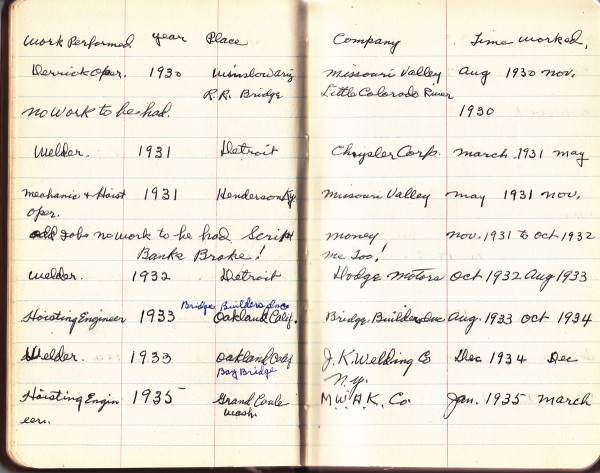 Work Performed year Place Company Time worked,
Derrick Oper. 1930 Winslow Ariz Missouri Valley Aug 1930 nov.
R.R. Bridge Little Colorado River 1930
no work to be had.
Welder. 1931 Detroit Chrysler Corp. march. 1931 may
mechanic & Hoist 1931 Henderson Ky Missouri Valley may 1931 nov.
oper.
odd Jobs no work to be had Script money nov. 1931 to Oct 1932
Banks Broke! me Too!
Welder. 1932 Detroit Dodge Motors Oct 1932 Aug 1933
Bridge Builders
Hoisting Engineer 1933 Oakland Calif. Bridge Builders Inc Aug. 1933 Oct 1934
Welder. 1933 Oakland Calif J.K. Welding Co Dec 1934 Dec
Bay Bridge N.y.
Hoisting Engin 1935 Grand Coule M.W.A.K. Co. Jan. 1935 march
eer. wash.